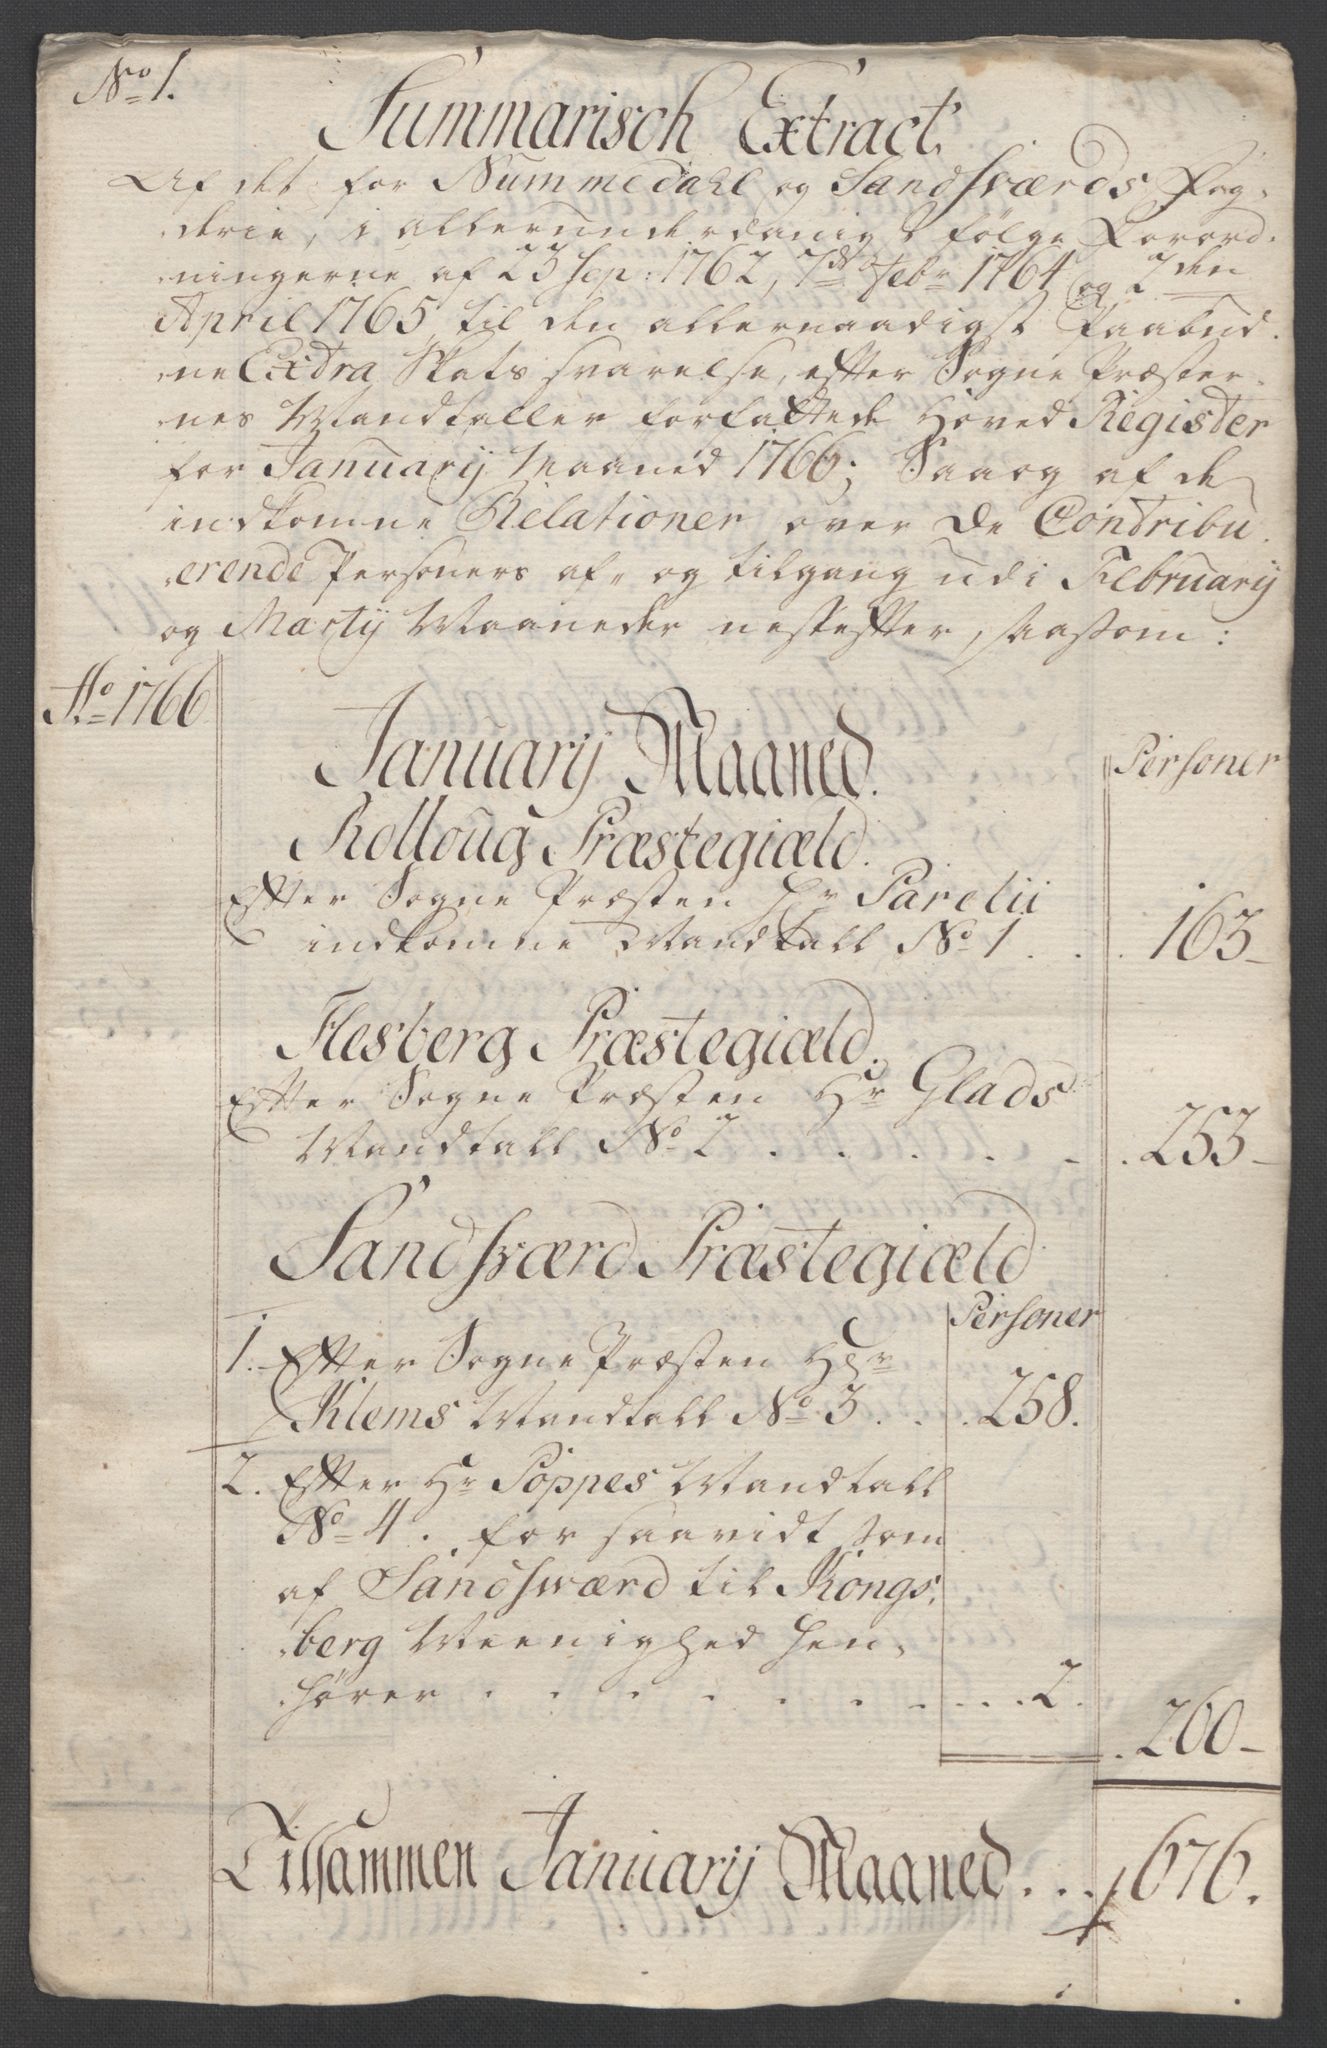 No 1.
Summarisch Extract,
Af det for Nummedahl og Sandsværds Fog-
derie, i allerunderdanigst følge Forord-
ningerne af 23 Sep: 1762, 7de Febr 1764 og 2den
April 1765 til den allernaadigst Paabud-
ne Extra Skats svarelse, efter Sogne Præster-
nes Mandtaller forfattede Hoved Register
for Januarij Maaned 1766; Saa og af de
indkomne Relationer over De Contribu-
erende Personers af- og tilgang udi Februarij
og Martij Maaneder nestefter, saasom:
Ao 1766
Januarij Maaned.
Personer
Rolloug Præstegiæld.
Efter Sogne Præsten Hr Parelii
indkomne Mandtall No 1 . . . 163-
Flesberg Præstegiæld.
Efter Sogne Præsten Hr Glads
Mandtall No 2 . . . . . . . 253-
Sandsværd Præstegiæld
Personer
1. Efter Sogne Præsten Hr
Klems Mandtall No 3 . . . 258.
2. Efter Hr Poppes Mandtall
No 4. for saavidt som
af Sandsværd til Kongs-
berg Meenighed hen-
hører . . . . . . . . . . 2.
. 260-
Tilsammen Januarij Maaned . . . 676.